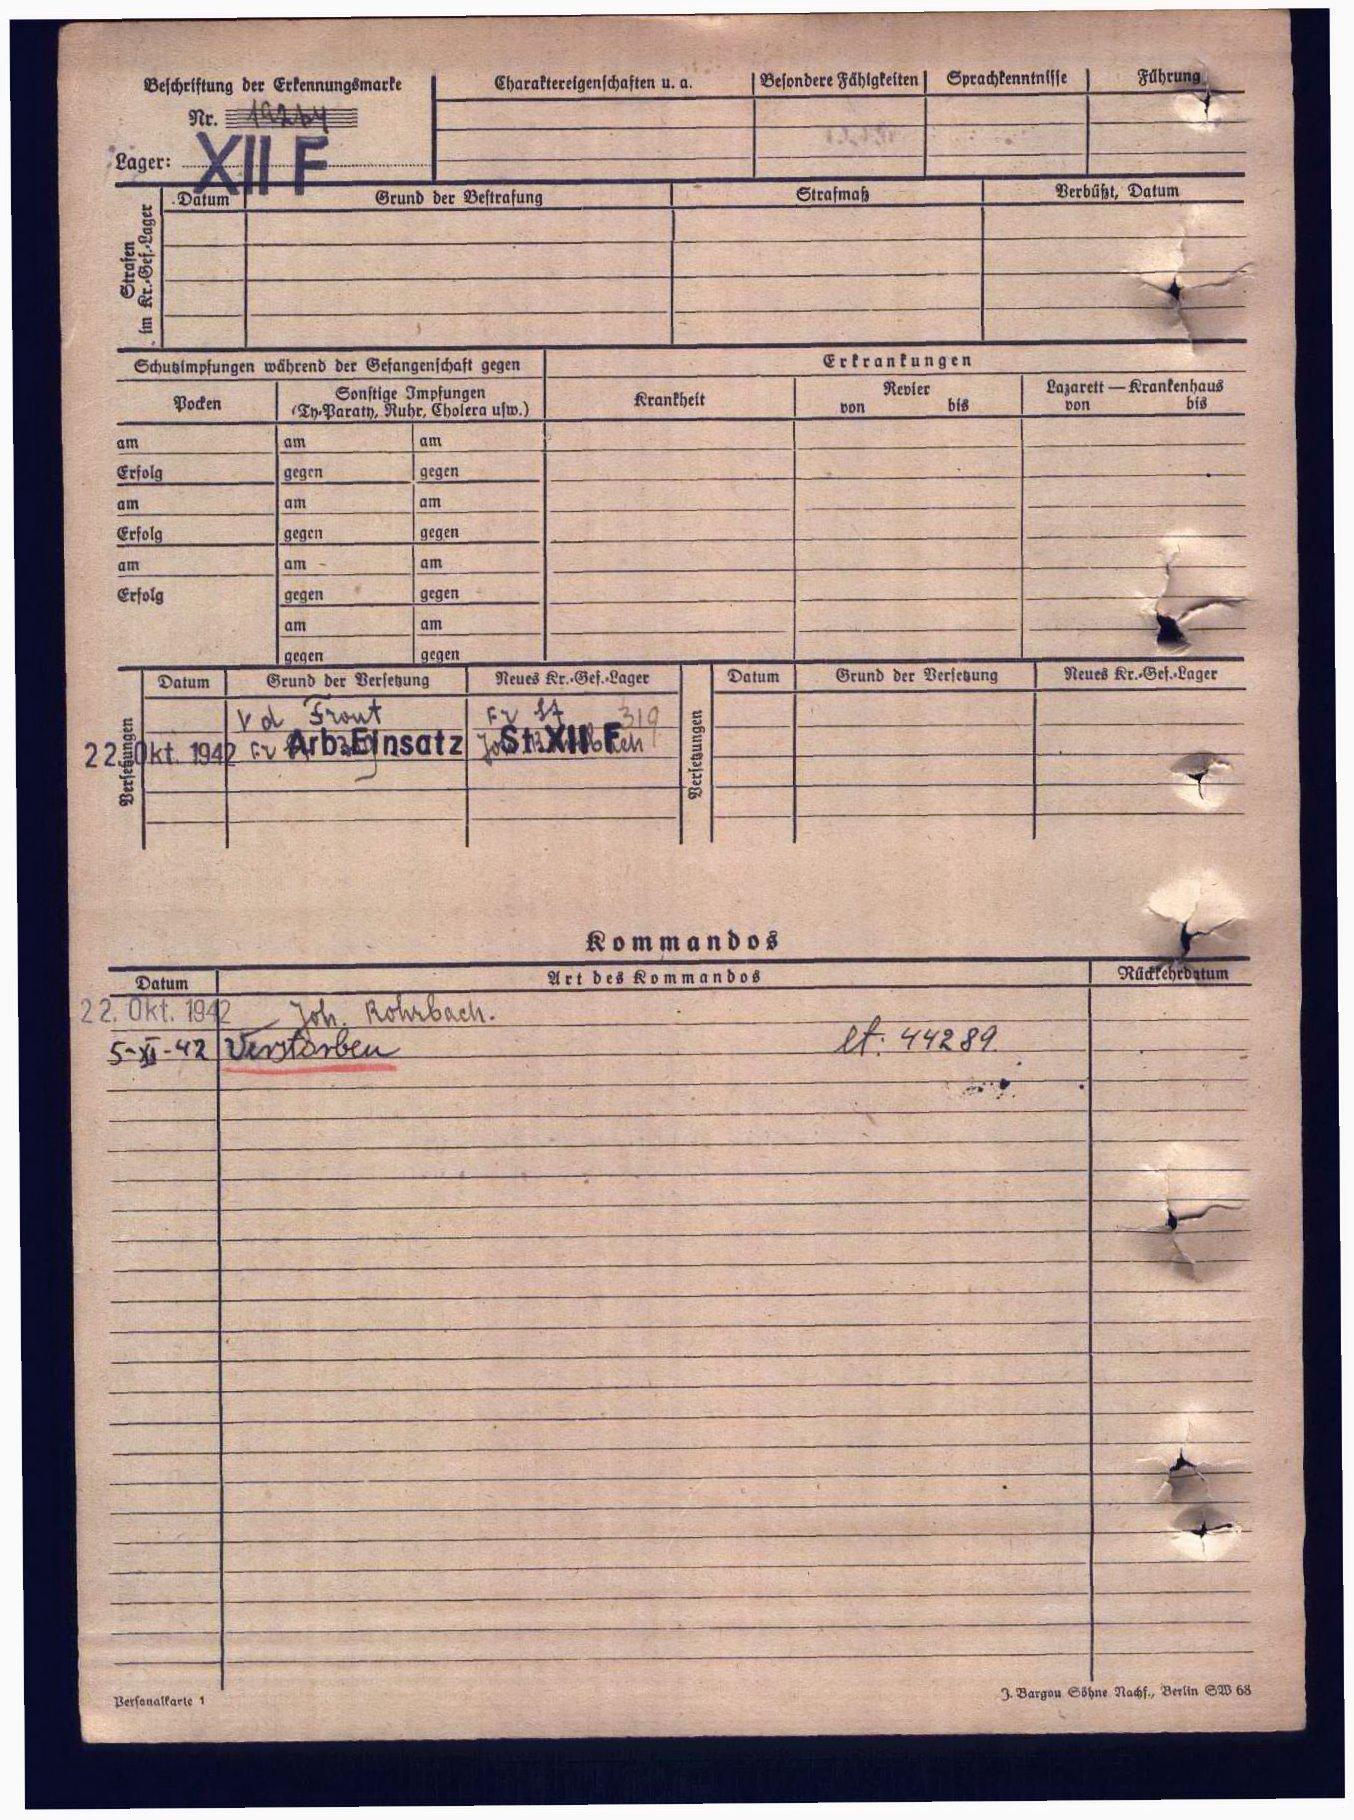 Beschriftung der Erkennungsmarke
Nr. 19264
Lager: XII F
Charaktereigenschaften u. a.
Besondere Fähigkeiten
Sprachkenntnisse
Führung
Strafen
im Kr.-Gef.-Lager
Datum
Grund der Bestrafung
Strafmaß
Verbüßt, Datum
Schutzimpfungen während der Gefangenschaft gegen
Erkrankungen
Pocken
Sonstige Impfungen
(Ty-Paraty, Ruhr, Cholera usw.)
Krankheit
Revier
von bis
Lazarett — Krankenhaus
von bis
am am am
Erfolg gegen gegen
am am am
Erfolg gegen gegen
am am am
Erfolg gegen gegen
am am
gegen gegen
Versetzungen
Datum Grund der Versetzung Neues Kr.-Gef.-Lager
v d Front Fr St 319
22 Okt. 1942 Fr Arb Einsatz St XII F
Versetzungen
Datum Grund der Versetzung Neues Kr.-Gef.-Lager
Kommandos
Datum Art des Kommandos Rückkehrdatum
22. Okt. 1942 Joh. Rohrbach.
5-XI-42 Verstorben lt: 44289
Personalkarte 1
J. Bargou Söhne Nachf., Berlin SW 68